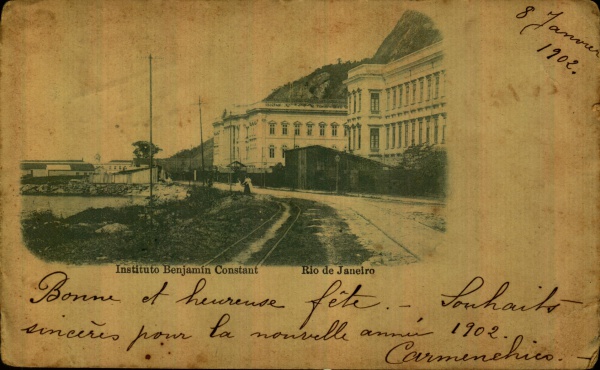 8 Janvier
1902.
Instituto Benjamin Constant Rio de Janeiro
Bonne et heureuse fête. - Souhaits
sincères pour la nouvelle année 1902.
Carmenchico. -